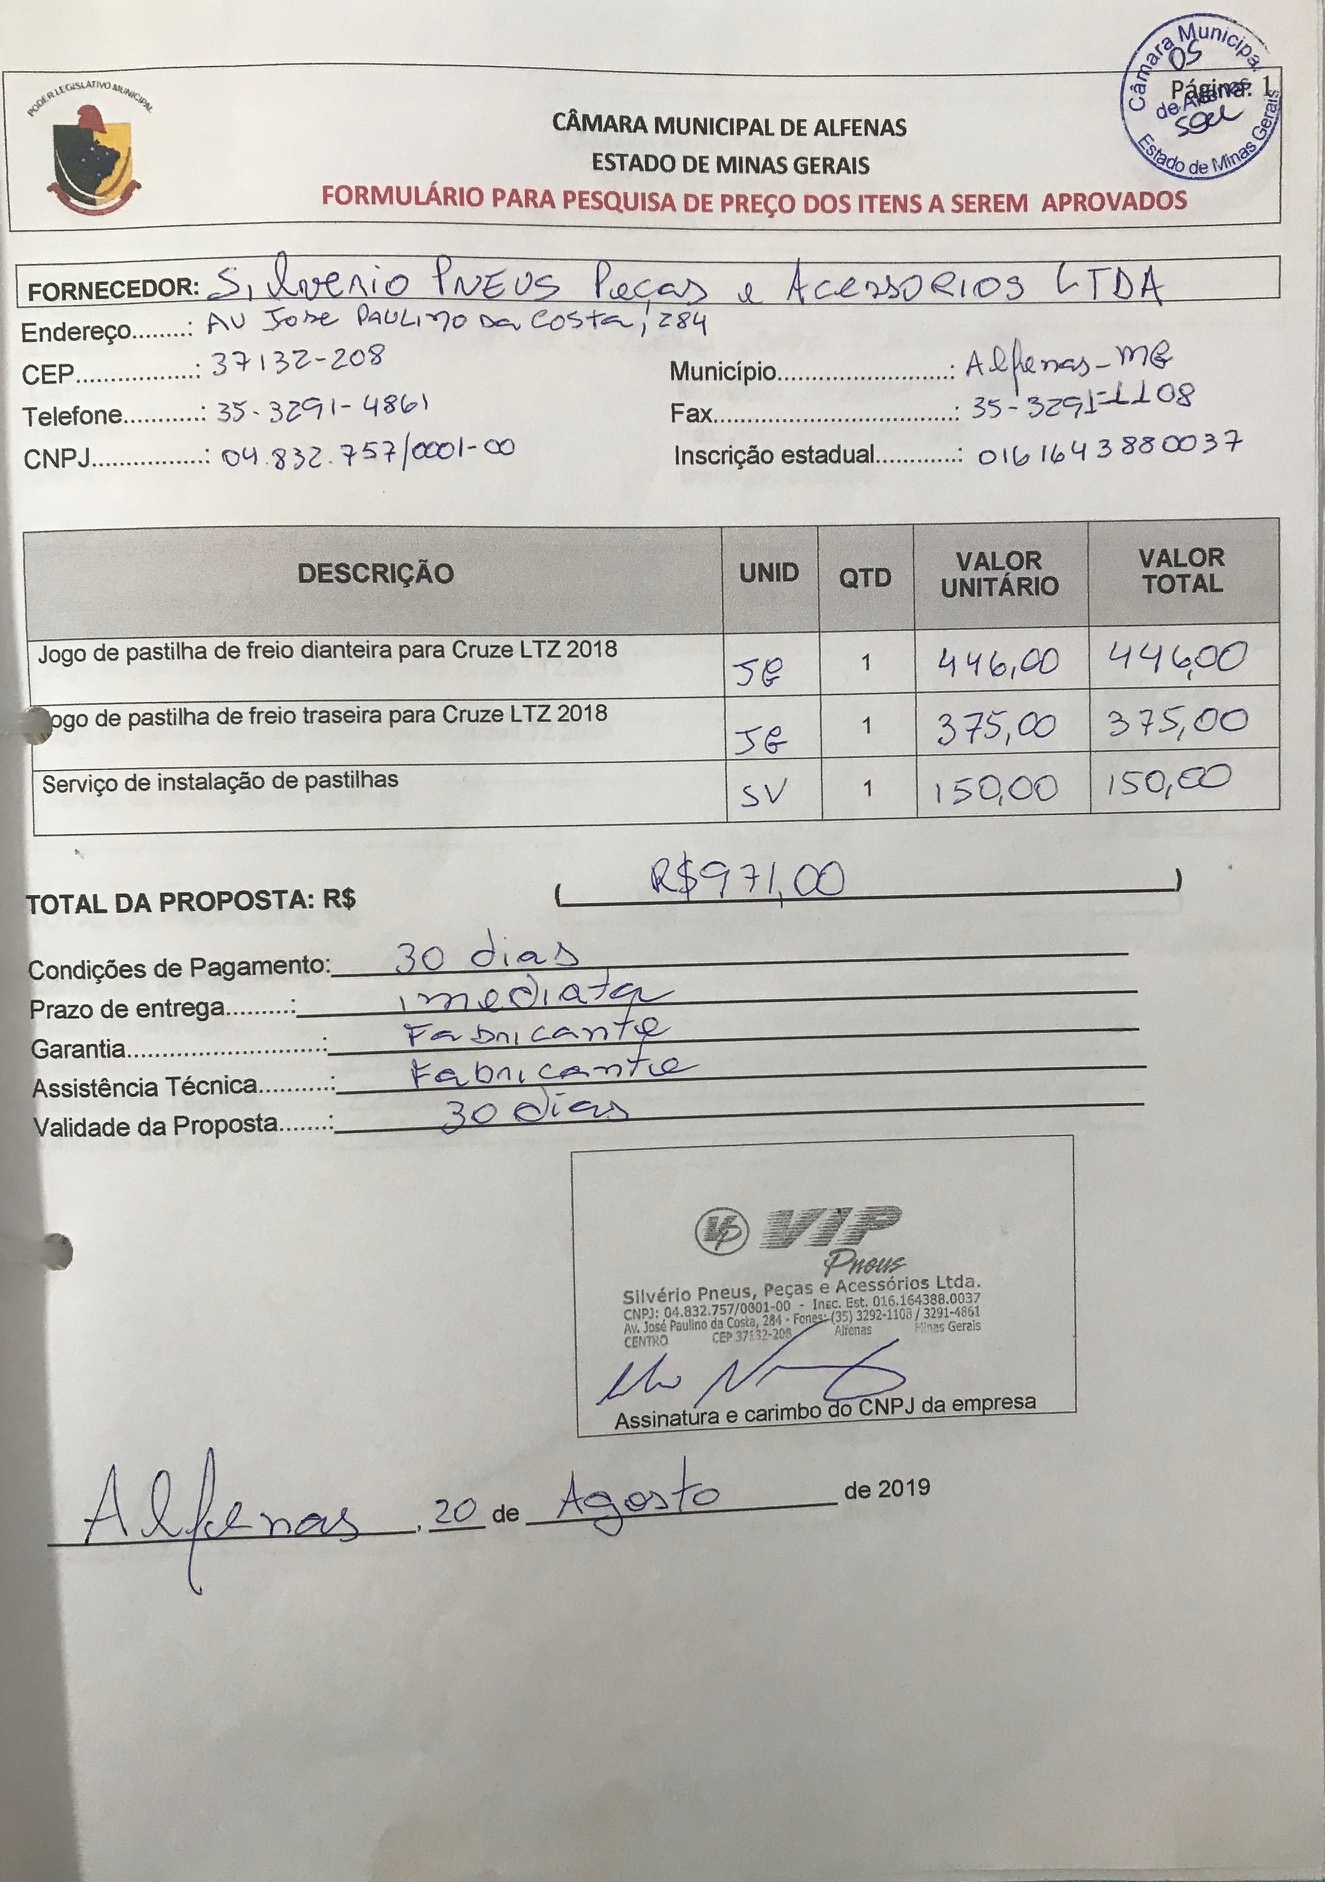 Câmara Municipal
05
Página: 1
de Alfenas
Estado de Minas Gerais
PODER LEGISLATIVO MUNICIPAL
CÂMARA MUNICIPAL DE ALFENAS
ESTADO DE MINAS GERAIS
FORMULÁRIO PARA PESQUISA DE PREÇO DOS ITENS A SEREM APROVADOS
FORNECEDOR: Silverio PNEUS Peças e ACESSORIOS LTDA
Endereço........: AV JOSE PAULINO DA COSTA, 284
CEP..................: 37132-208 Município..........................: Alfenas-MG
Telefone...........: 35-3291-4861 Fax.....................................: 35-3291-1108
CNPJ.................: 04.832.757/0001-00 Inscrição estadual............: 0161643880037
DESCRIÇÃO UNID QTD VALOR UNITÁRIO VALOR TOTAL
Jogo de pastilha de freio dianteira para Cruze LTZ 2018 JG 1 446,00 446,00
ogo de pastilha de freio traseira para Cruze LTZ 2018 JG 1 375,00 375,00
Serviço de instalação de pastilhas SV 1 150,00 150,00
TOTAL DA PROPOSTA: R$ ( R$971,00 )
Condições de Pagamento: 30 dias
Prazo de entrega.........: imediata
Garantia............................: Fabricante
Assistência Técnica..........: Fabricante
Validade da Proposta.......: 30 dias
VP VIP
Pneus
Silvério Pneus, Peças e Acessórios Ltda.
CNPJ: 04.832.757/0001-00 - Insc. Est. 016.164388.0037
Av. José Paulino da Costa, 284 - Fones: (35) 3292-1108 / 3291-4861
CENTRO CEP 37132-208 Alfenas Minas Gerais
Assinatura e carimbo do CNPJ da empresa
Alfenas, 20 de Agosto de 2019